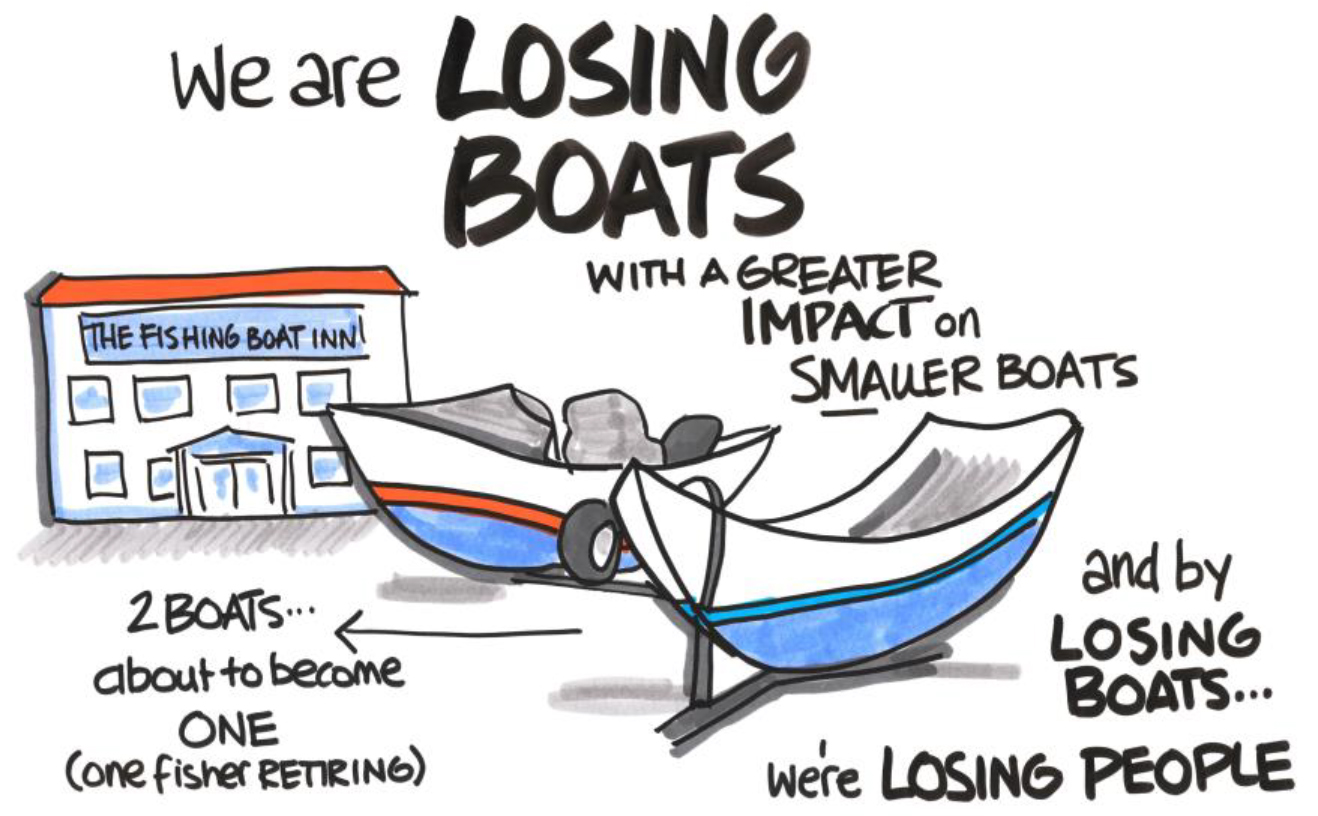 We are LOSING
BOATS
WITH A GREATER
IMPACT on
SMALLER BOATS
THE FISHING BOAT INN
2 BOATS...
about to become
ONE
(one fisher RETIRING)
and by
LOSING
BOATS...
we're LOSING PEOPLE